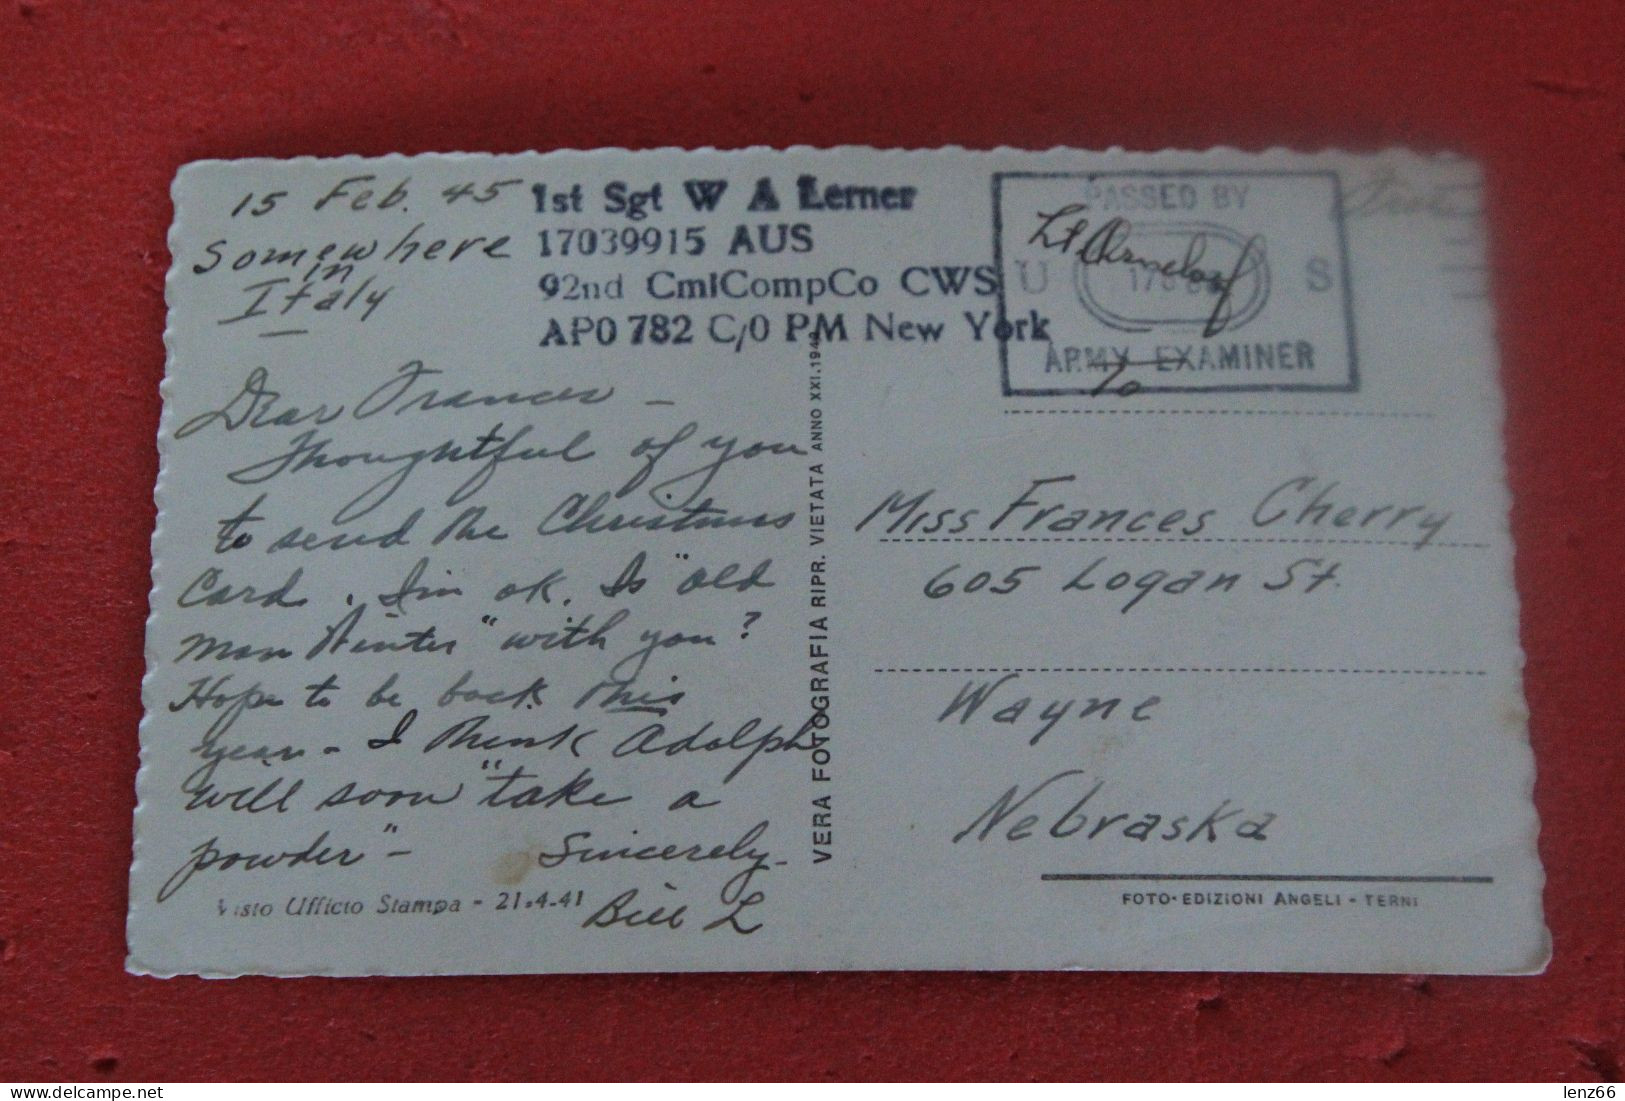 15 Feb. 45
Somewhere
in
Italy
1st Sgt W A Lerner
17039915 AUS
92nd CmlCompCo CWS
APO 782 C/O PM New York
PASSED BY
U S
ARMY EXAMINER
Dear Frances -
Thoughtful of you
to send the Christmas
Card. I'm ok. Is "old
man Winter" with you?
Hope to be back this
year - I think Adolph
will soon "take a
powder" -
Sincerely -
Bill L
Visto Ufficio Stampa - 21.4.41
VERA FOTOGRAFIA RIPR. VIETATA ANNO XXI.194
Miss Frances Cherry
605 Logan St.
Wayne
Nebraska
FOTO-EDIZIONI ANGELI - TERNI
lenz66